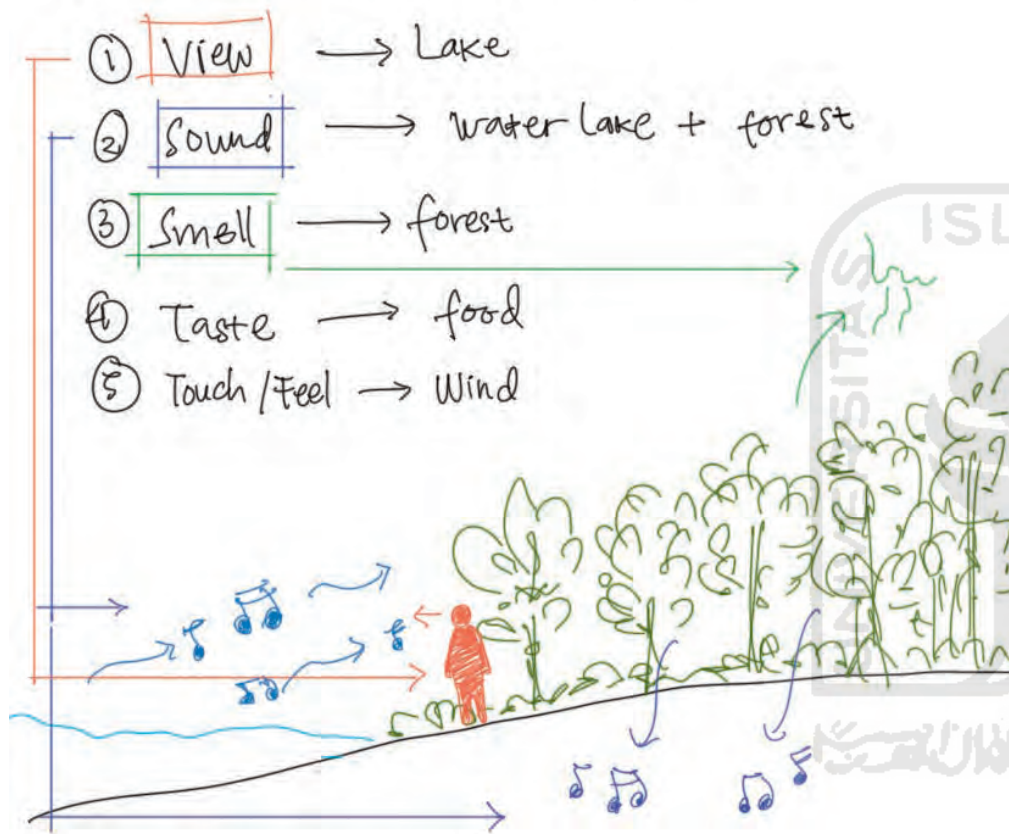 ① View → Lake
② Sound → water lake + forest
③ Smell → forest
④ Taste → food
⑤ Touch / Feel → Wind
ISL
UNIVERSITAS